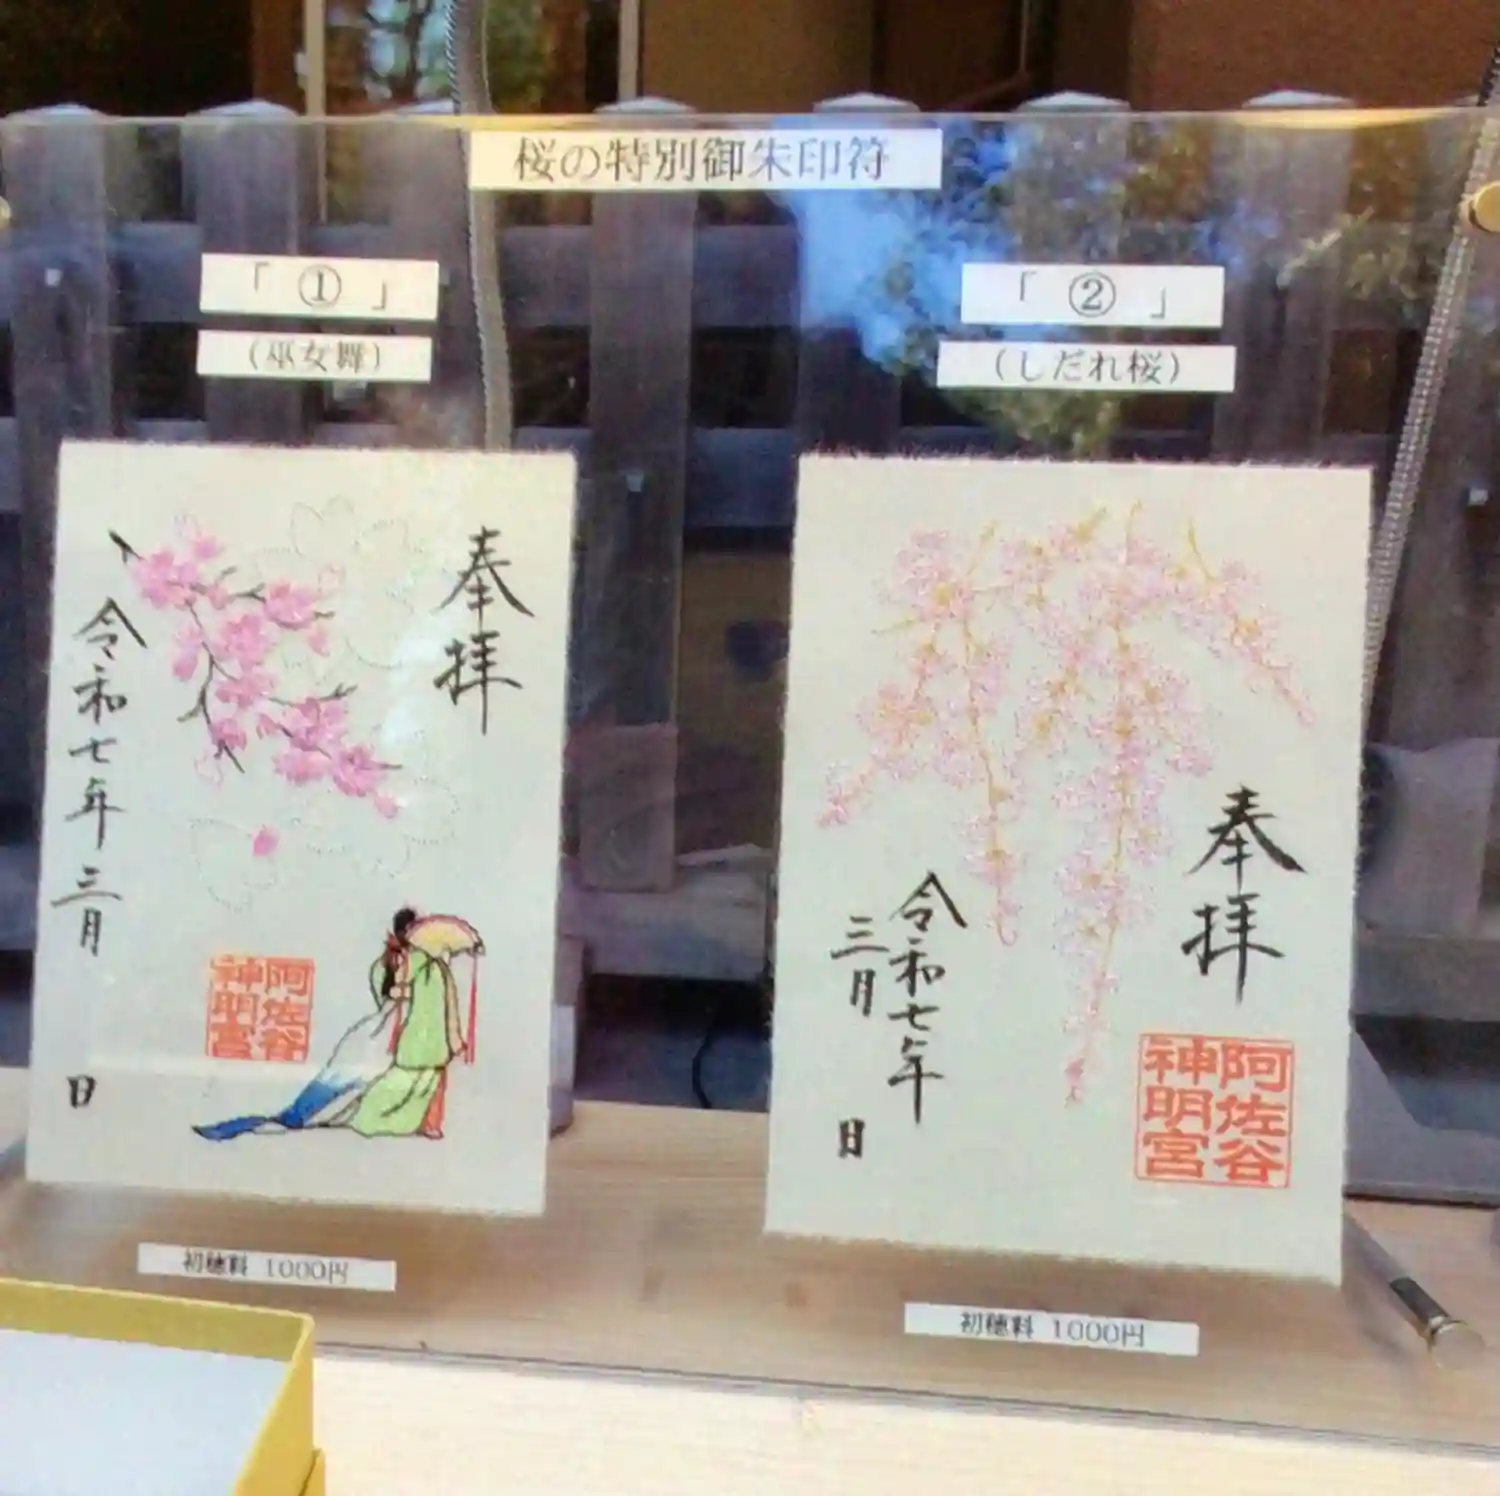 桜の特別御朱印符
「 ① 」
(巫女舞)
奉拝
令和七年三月 日
阿佐谷
神明宮
初穂料 1000円
「 ② 」
(しだれ桜)
奉拝
令和七年
三月 日
阿佐谷
神明宮
初穂料 1000円